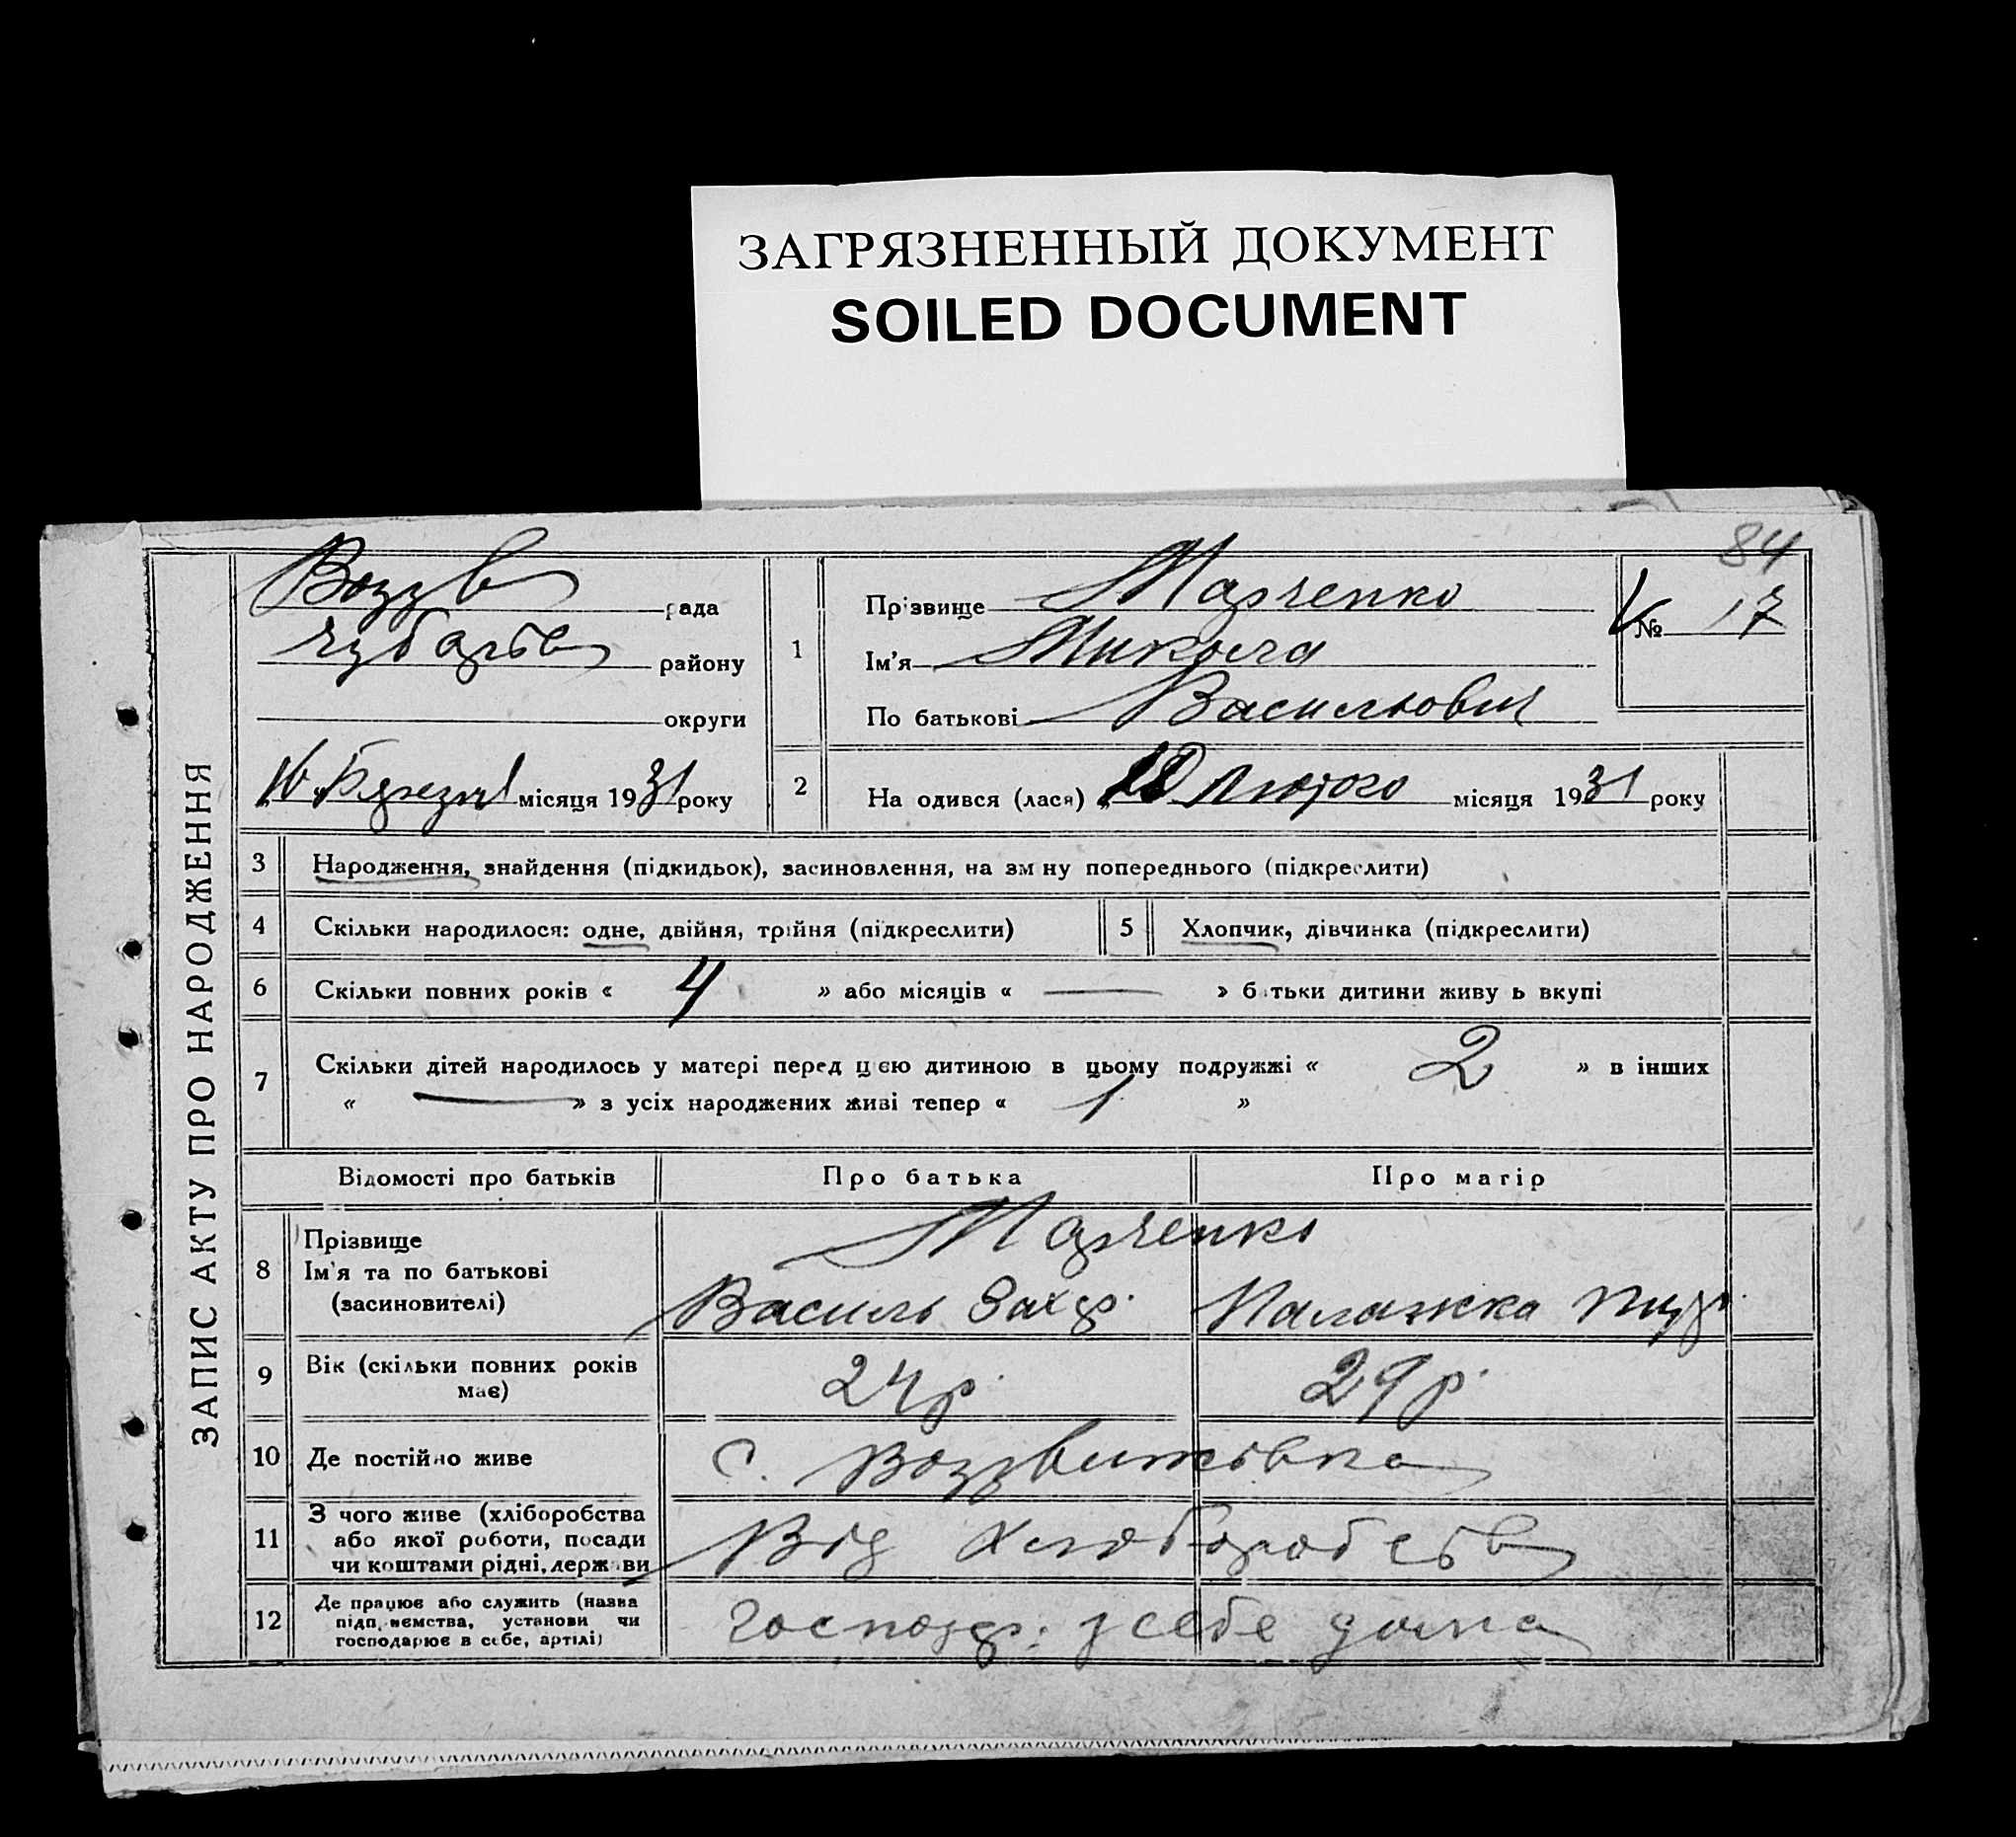 ЗАГРЯЗНЕННЫЙ ДОКУМЕНТ
SOILED DOCUMENT
84
ЗАПИС АКТУ ПРО НАРОДЖЕННЯ
Воздв рада
Чубарів району
округи
місяця 1931 року
1
Прізвище Марченко
Ім'я Микола
По батькові Васильович
№ 17
2
На одився (лася) Лютого місяця 1931 року
3 Народження, знайдення (підкидьок), засиновлення, на зм ну попереднього (підкреслити)
4 Скільки народилося: одне, двійня, трійня (підкреслити) 5 Хлопчик, дівчинка (підкреслити)
6 Скільки повних років « 4 » або місяців « — » б тьки дитини живу ь вкупі
7 Скільки дітей народилось у матері перед цією дитиною в цьому подружжі « 2 » в інших
« — » з усіх народжених живі тепер « 1 »
Відомості про батьків Про батька Про матір
8 Прізвище
Ім'я та по батькові
(засиновителі)
Марченко
Василь Захар. Палажка
9 Вік (скільки повних років
має)
24 р. 29 р.
10 Де постійно живе с. Воздвижівка
11 З чого живе (хліборобства
або якої роботи, посади
чи коштами рідні, держави
Від хліборобств
12 Де працює або служить (назва
підп. ємства, установи чи
господарює в себе, артілі)
господар. у себе дома